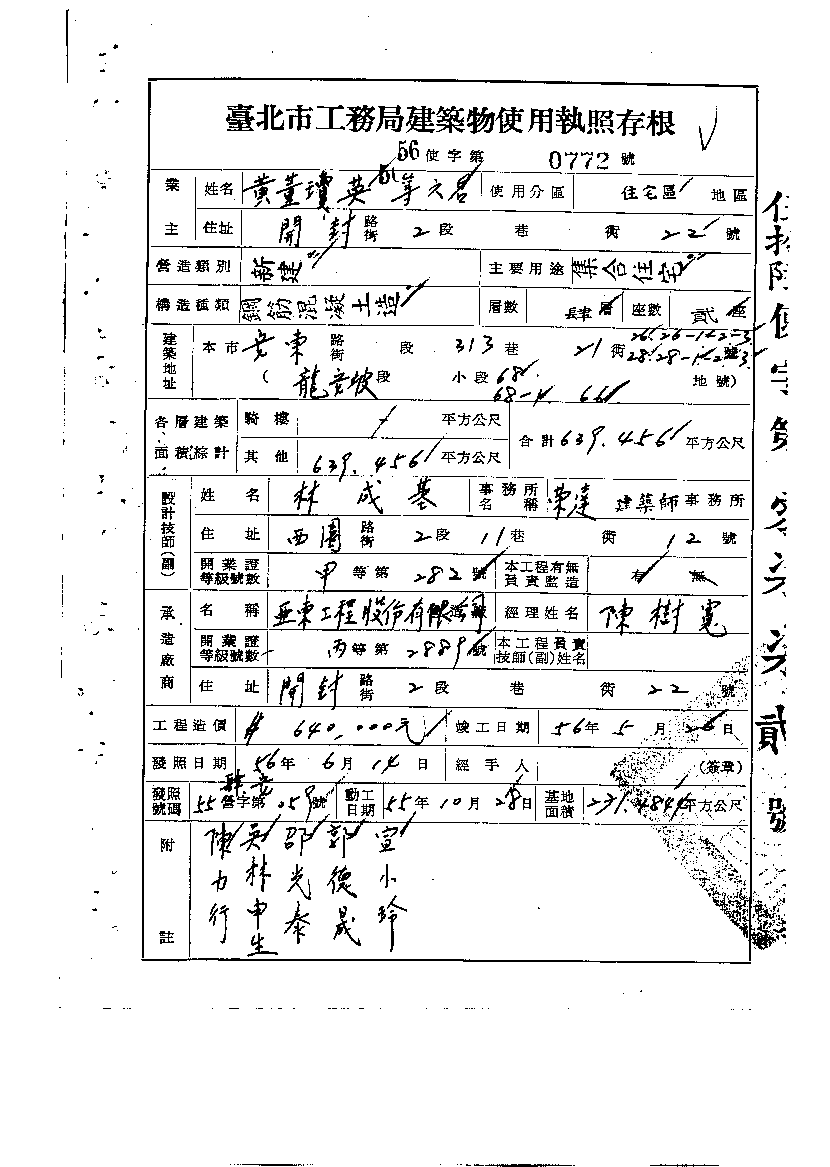 臺北市工務局建築物使用執照存根
56使字第 0772 號
業主 姓名 黃董瓊英等六名 使用分區 住宅區 地區
住址 開封 路街 2段 巷 衖 22 號
營造類別 新建 主要用途 集合住宅
構造種類 鋼筋混凝土造 層數 肆層 座數 貳座
建築地址 本市 安東 路街 段 313巷 21衖 26.26-1.2-3 28.28-1.2.3 號
(龍安坡段 小段 68. 68-4. 66 地號)
各層建築面積綜計 騎樓 / 平方公尺 合計 639.456 平方公尺
其他 639.456 平方公尺
設計技師(副) 姓名 林成基 事務所名稱 榮達 建築師事務所
住址 西園 路街 2段 11巷 衖 12號
開業證等級號數 甲等第 282號 本工程有無負責監造 有 無
承造廠商 名稱 亞東工程股份有限公司 經理姓名 陳樹寬
開業證等級號數 丙等第 2889號 本工程負責技師(副)姓名
住址 開封 路街 2段 巷 衖 22 號
工程造價 $ 640,000元 竣工日期 56年5月26日
發照日期 56年6月14日 經手人 (簽章)
發照號碼 55營字第 059號 動工日期 55年10月28日 基地面積 231.484平方公尺
附註
陳力行
吳林申生
邵光泰
郭德晟
宣小玲
貳號